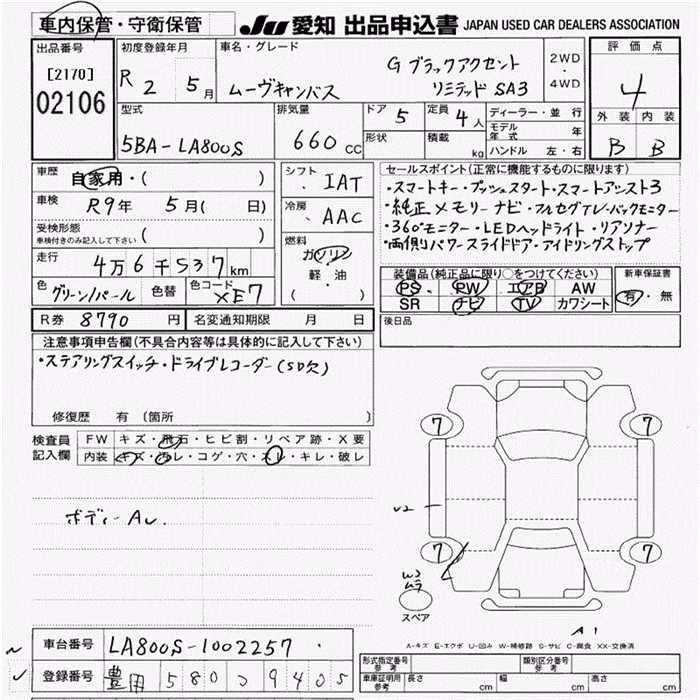 車内保管・守衛保管 JU 愛知 出品申込書 JAPAN USED CAR DEALERS ASSOCIATION
出品番号 [2170] 02106
初度登録年月 R 2 5月
車名・グレード ムーヴキャンバス G ブラックアクセント リミテッド SA3
2WD・4WD
評価点 4
外装 内装
B B
型式 5BA-LA800S
排気量 660 CC
ドア 5
形状
定員 4人
積載 kg
ディーラー・並行
モデル年式 年
ハンドル 左・右
車歴 自家用・( )
車検 R9年 5月( 日)
受検形態 車検付きのみ記入して下さい ( )
走行 4万6千537km
色 グリーン/パール 色替 色コード XE7
シフト IAT
冷房 AAC
燃料 ガソリン 軽・油 ( )
セールスポイント(正常に機能するものに限ります)
・スマートキー・プッシュスタート・スマートアシスト3
・純正メモリーナビ・フルセグTV・バックモニター
・360°モニター・LEDヘッドライト・リアソナー
・両側パワースライドドア・アイドリングストップ
装備品(純正品に限り○をつけてください)
PS PW エアB AW
SR ナビ TV カワシート
新車保証書
有・無
R券 8790円 名変通知期限 月 日
後日品
注意事項申告欄(不具合内容等は具体的に記入して下さい)
・ステアリングスイッチ・ドライブレコーダー(SD欠)
修復歴 有 (箇所 )
検査員記入欄
FW キズ・飛石・ヒビ割・リペア跡・X要
内装 キズ・汚レ・コゲ・穴・スレ・キレ・破レ
ボディーAU.
7 7
U2
7 7
W3
ムラ
スペア
A1
A-キズ E-エクボ U-凹み W-補修跡 S-サビ C-腐食 XX-交換済
車台番号 LA800S-1002257
登録番号 豊田 580 う 9405
形式指定番号 参考 類別区分番号 参考
車庫証明用 参考 長さ cm 幅 cm 高さ cm